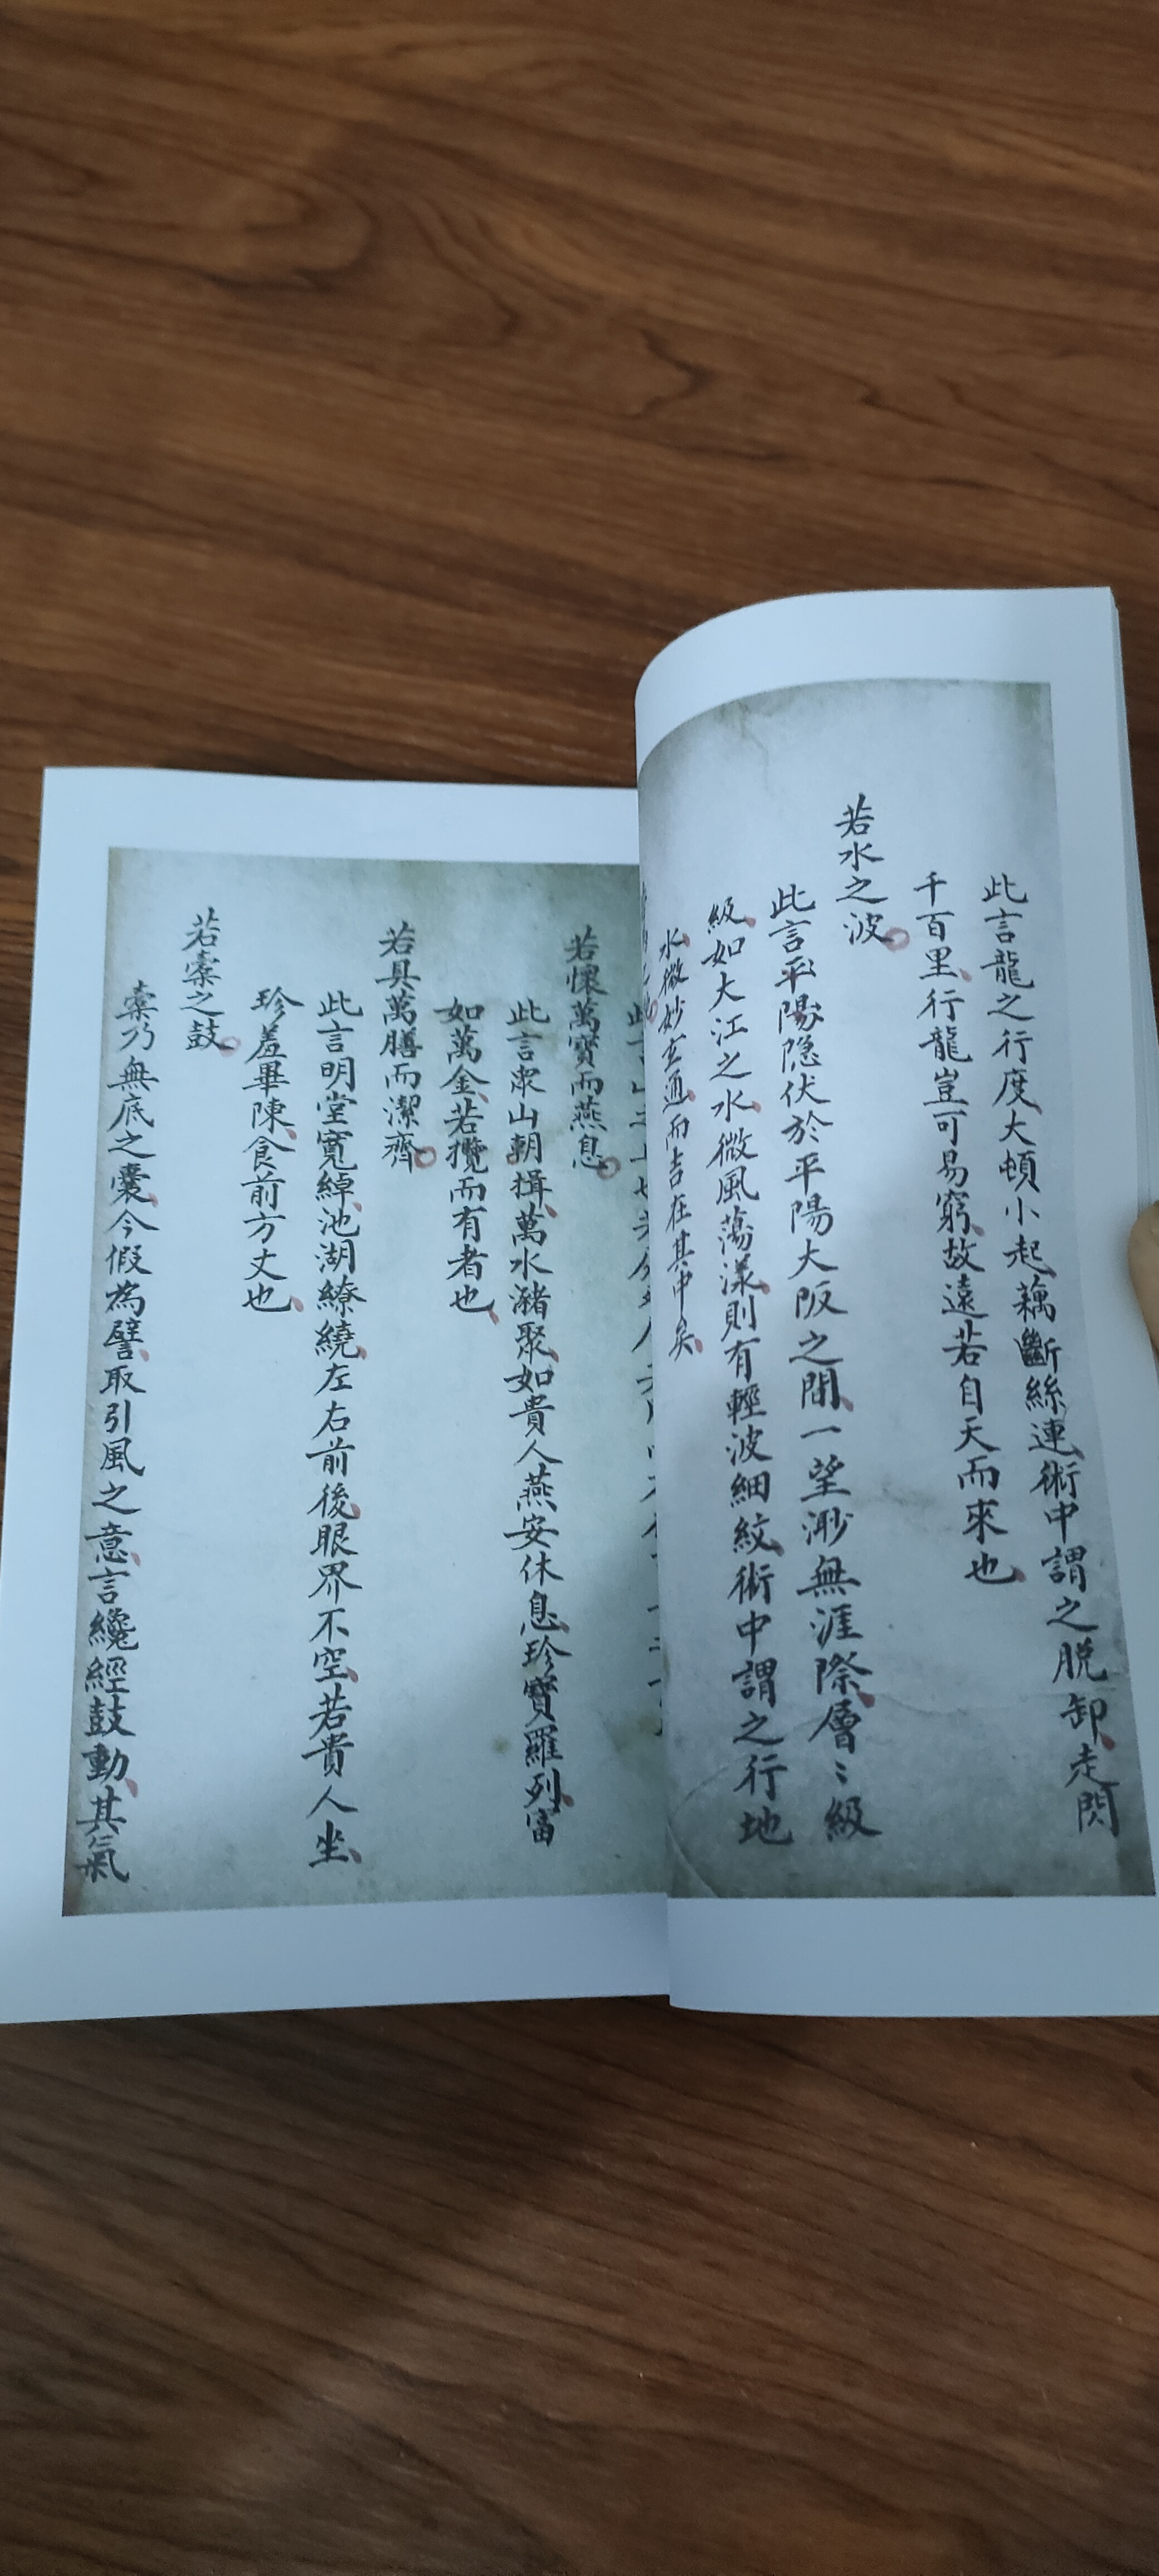 此言龍之行度、大頓小起、藕斷絲連、術中謂之脱卸、走閃
千百里、行龍豈可易窮、故遠若自天而來也、
若水之波。
此言平陽隐伏於平陽大阪之間、一望渺無涯際、層〻級
級、如大江之水、微風蕩漾、則有輕波細紋、術中謂之行地
水、微妙玄通、而吉在其中矣、
若懷萬寶而燕息。
此言眾山朝揖、萬水瀦聚、如貴人燕安休息、珍寶羅列、富
如萬金、若攬而有者也、
若具萬膳而潔齊。
此言明堂寬綽、池湖繚繞、左右前後、眼界不空、若貴人坐、
珍羞畢陳、食前方丈也、
若橐之鼓。
橐乃無底之囊、今假為譬、取引風之意、言纔經鼓動、其氣